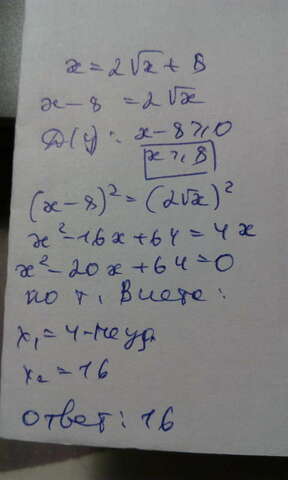 x = 2√x + 8
x - 8 = 2√x
D(y): x - 8 ≥ 0
x ≥ 8
(x - 8)² = (2√x)²
x² - 16x + 64 = 4x
x² - 20x + 64 = 0
по т. Виета:
x₁ = 4 - не уд.
x₂ = 16
ответ: 16